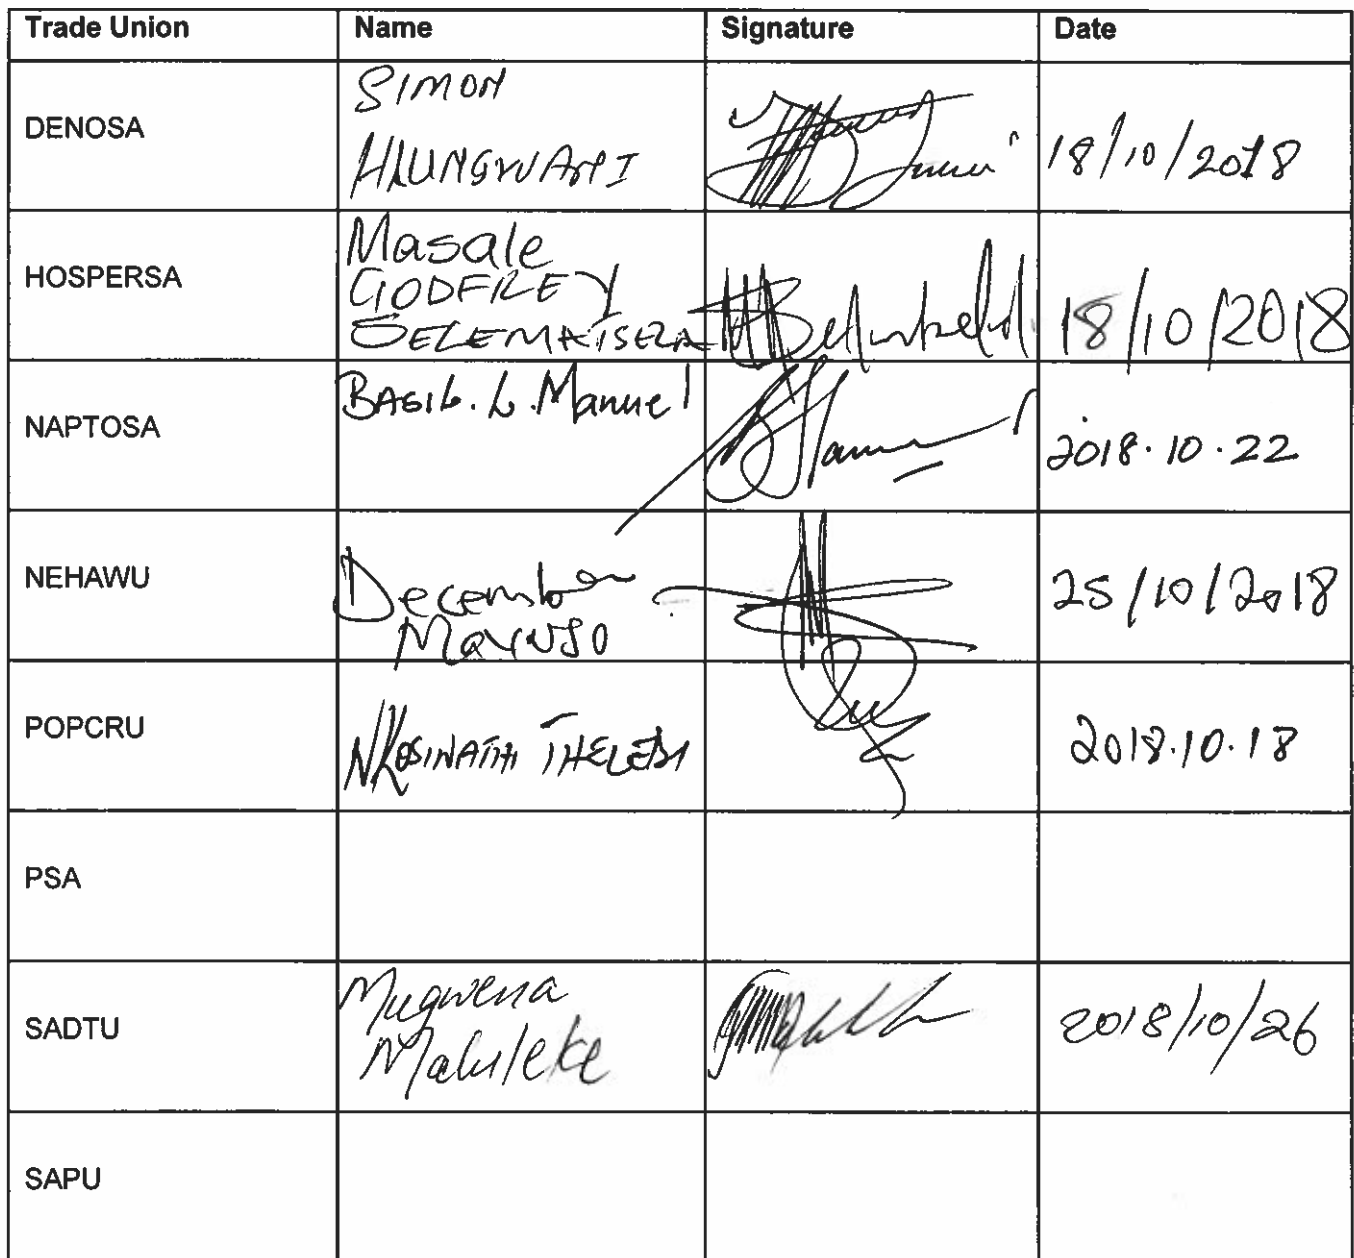 Trade Union Name Signature Date
DENOSA
SIMON
HLUNGWANI
18/10/2018
HOSPERSA
Masale
GODFREY
SELEMATSELA
18/10/2018
NAPTOSA
BASIL. L. Manuel
2018.10.22
NEHAWU
December
Mavuso
25/10/2018
POPCRU
NKOSINATHI THELEDI
2018.10.18
PSA
SADTU
Mugwena
Maluleke
2018/10/26
SAPU